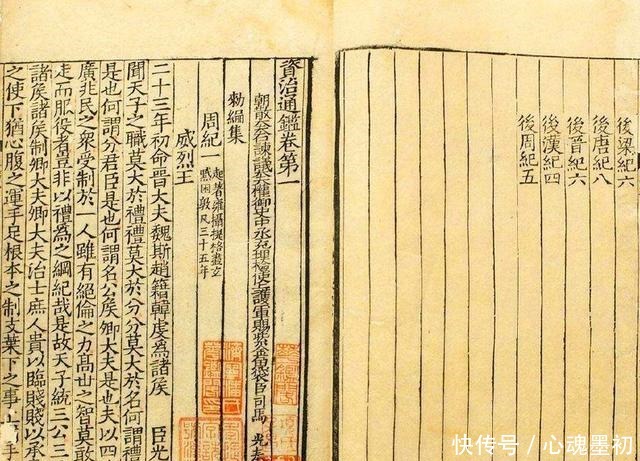 後梁紀六
後唐紀八
後晉紀六
後漢紀四
後周紀五
資治通鑑卷第一
朝散大夫右諫議大夫權御史中丞充理檢使上護軍賜紫金魚袋臣司馬 光奉
勑編集
周紀一 起著雍攝提格盡玄
黓困敦凡三十五年
威烈王
二十三年初命晉大夫魏斯趙籍韓虔爲諸矦 臣光
聞天子之職莫大於禮禮莫大於分分莫大於名何謂
是也何謂分君臣是也何謂名公矦卿大夫是也夫以四
廣兆民之衆受制於一人雖有絕倫之力高世之智莫敢
走而服役者豈非以禮爲之綱紀哉是故天子統三公三
諸矦諸矦制卿大夫卿大夫治士庶人貴以臨賤賤以承
之使下猶心腹之運手足根本之制支葉下之事上
快传号／心魂墨初